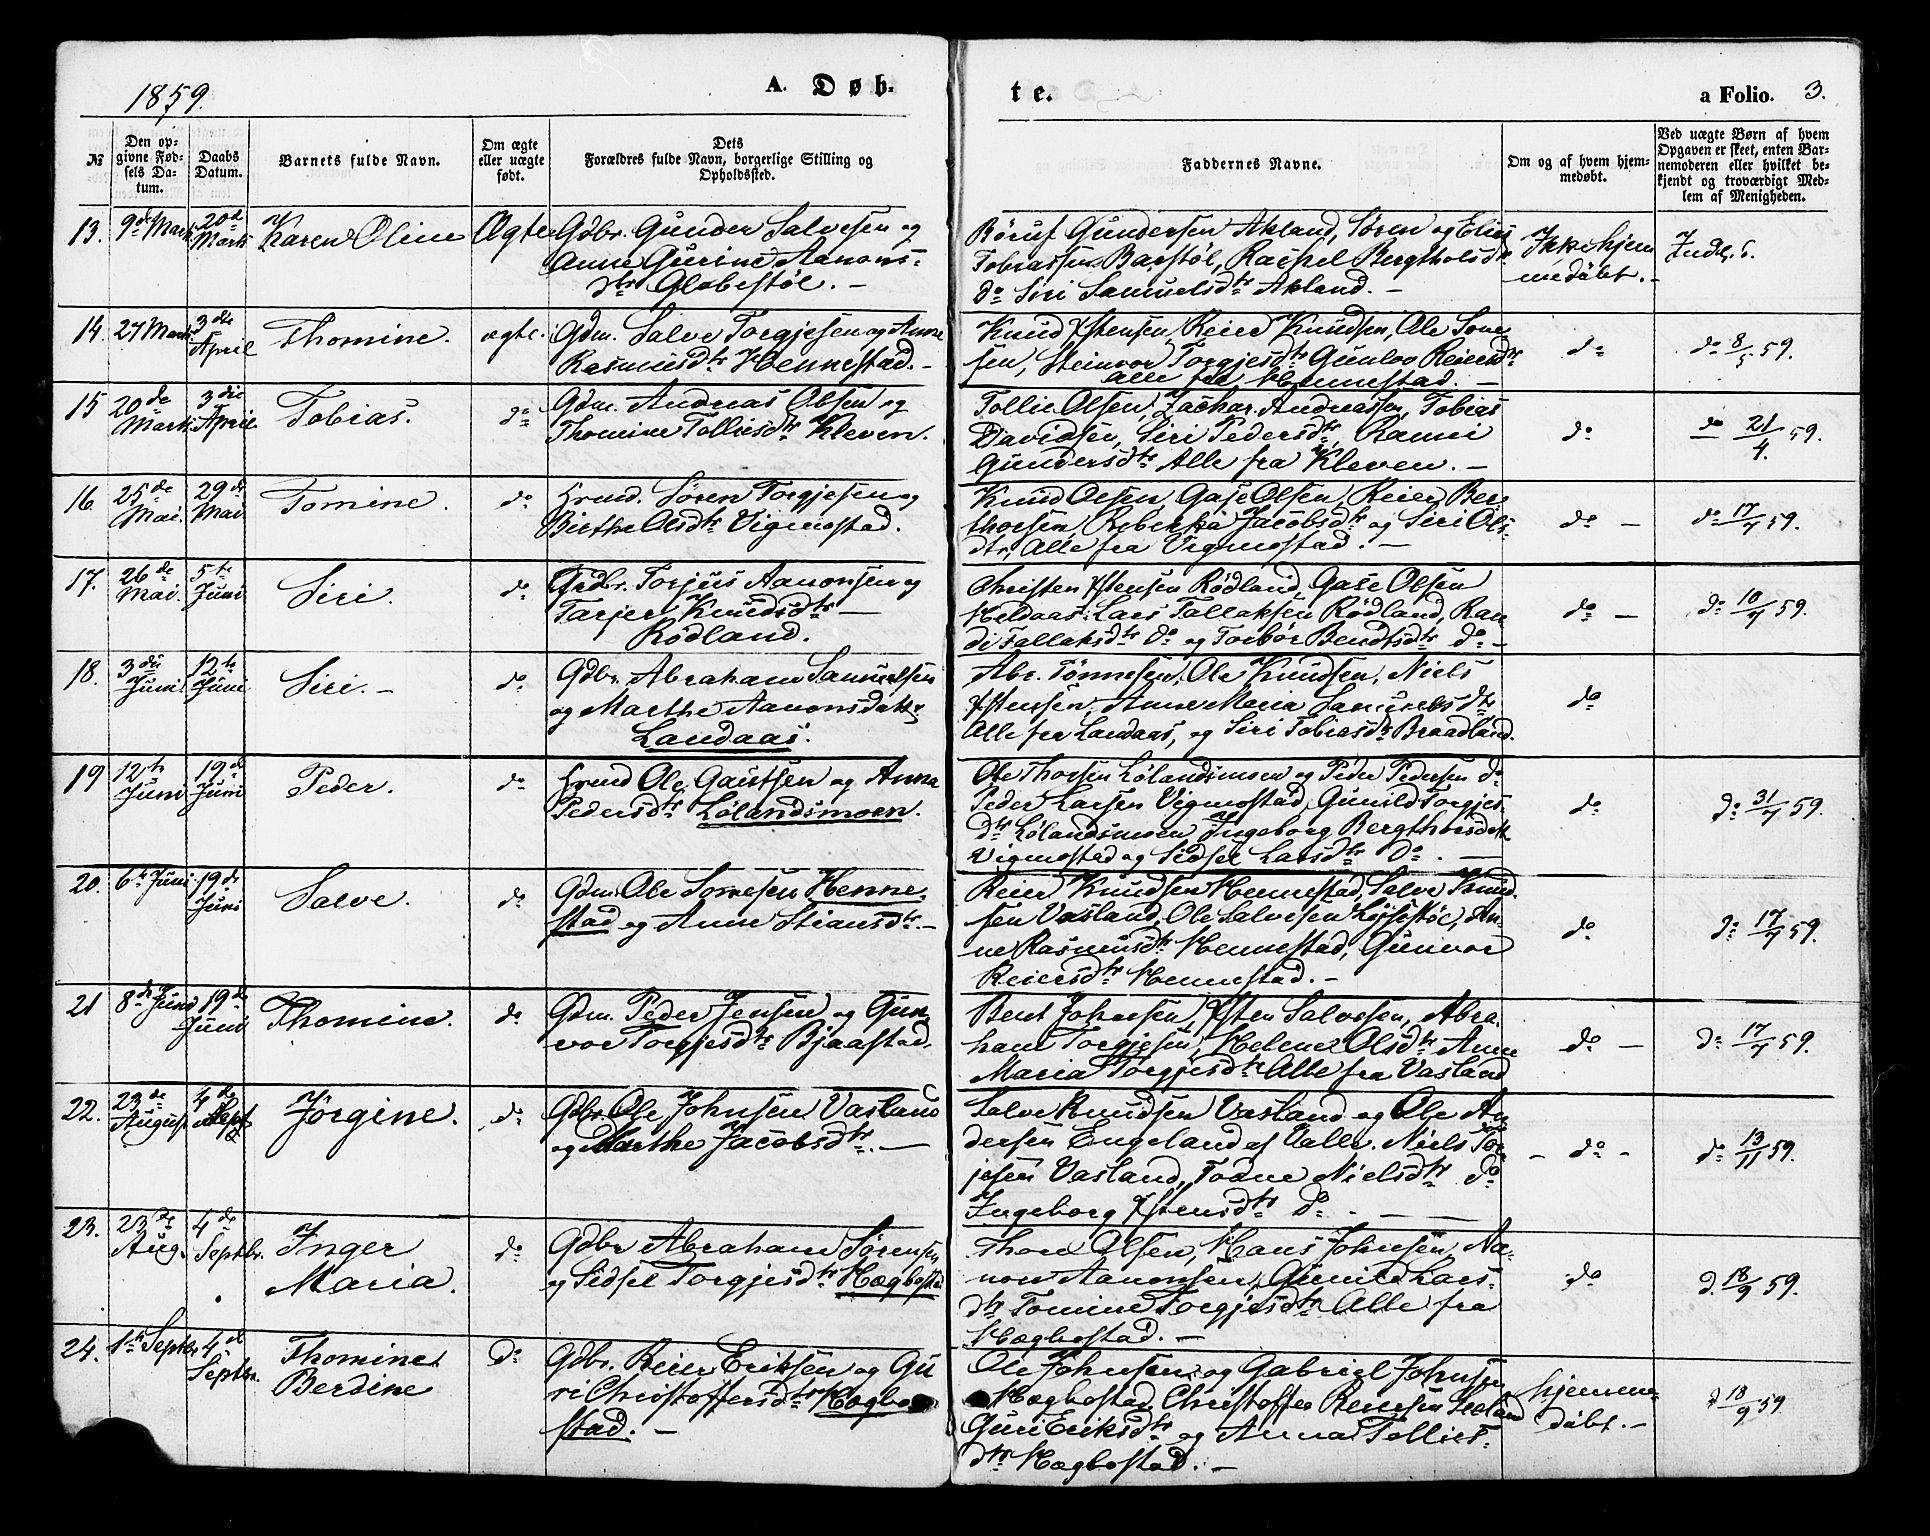 1859.
A. Døb-
te.
a Folio. 3.
№
Den op-
givne Fød-
sels Da-
tum.
Daabs
Datum.
Barnets fulde Navn.
Om ægte
eller uægte
født.
Dets
Forældres fulde Navn, borgerlige Stilling og
Opholdssted.
Faddernes Navne.
Om og af hvem hjem-
medøbt.
Ved uægte Børn af hvem
Opgaven er skeet, enten Bar-
nemoderen eller hvilket be-
kjendt og troværdigt Med-
lem af Menigheden.
13.
9de Marts
20de
Marts
Karen Oline
Ægte
Gdbr. Gunder Salvesen og
Anne Gurine Aanons-
dtr Glabestøl. -
Børuf Gundersen Akland, Søren og Elias
Tobiassen Barstøl, Rachel Bergtholsdtr
do Siri Samuelsdtr Akland. -
Ikke hjem
medøbt. -
14.
27 Marts
3die
April
Thomine.
ægte.
Gdm. Salve Torgjesen og Anne
Rasmusdtr Hennestad. -
Knud Ystensen, Reier Knudsen, Ole Sone
sen, Steinvor Torgjesdtr Gunlov Reiersdtr
alle fra Hennestad. -
do
do 8/5 59.
15
20de
Marts
3die
April
Tobias.
do
Gdm. Andreas Olsen og
Thomine Tollisdtr Kleven.
Tollie Olsen, Zachar. Andreassen, Tobias
Davidsen, Siri Pedersdtr, Ramei
Gundersdtr Alle fra Kleven. -
do
do 21/4 59.
16.
25de
Mai.
29de
Mai
Tomine.
do
Søren Torgjesen og
Birthe Olsdtr Vigmostad.
Knud Olsen, Gase Olsen, Reier Ber
thorsen, Rebekka Jacobsdtr og Siri Ols-
dtr, Alle fra Vigmostad. -
do -
do 17/7 59.
17.
26de
Mai.
5te
Juni
Siri.
do
Grdbr. Torjus Aanonsen og
Tarjer Knudsdtr -
Rødland.
Christen Ystensen Rødland, Gase Olsen
Heldaas, Lars Tallaksen Rødland, Ran
di Tallaksdtr do og Torbor Bendtsdtr do -
do -
do 10/7 59.
18.
3die
Juni
12te
Juni
Siri. -
do
Gdbr. Abraham Samuelsen
og Marthe Aanonsdatter
Landaas.
Abr. Tønnesen, Ole Knudsen, Niels
Ystensen, Anne Maria Samuelsdtr
Alle fra Landaas, og Siri Tobiasdtr Braadland.
do
19
12te
Juni
19de
Juni
Peder.
do
Ole Gautsen og Anna
Pedersdtr Lølandsmoen.
Ole Thorsen Lølandsmoen og Peder Pedersen do
Peder Larsen Vigmostad, Gunild Torgjes
dtr Lølandsmoen Ingeborg Bergthorsdatt
Vigmostad og Sidsel Larsdtr do. -
do
do 31/7 59.
20.
6te Juni
19de
Juni
Salve.
do
Gdm. Ole Sonesen Henne-
stad og Anne Stiansdtr. -
Reier Knudsen Hennestad, Salve Knud-
sen Vasland, Ole Salvesen Lyssestøl, An-
ne Rasmusdtr Hennestad, Gunvor
Reiersdtr Hennestad. -
do
do 17/7 59.
21
8de Juni
19de
Juni
Thomine.
do
Gdm. Peder Jensen og Gun
vor Torgjesdtr Bjaastad.
Bent Johnsen, Ysten Salvesen, Abra-
ham Torgjesen, Helene Olsdtr Anne
Maria Torgjesdtr Alle fra Vasland
do -
do 17/7 59.
22.
23de
August
4de
Sept
Jørgine.
do
Gdbr. Ole Johnsen Vasland
og Marthe Jacobsdtr. -
Salve Knudsen Vasland og Ole An
dersen Engeland af Halle. Niels Tor-
jesen Vasland, Todne Nielsdtr do
Ingeborg Ystensdtr do. -
- do -
do 13/11 59.
23.
23de
Aug.
4de
Septbr.
Inger
Maria.
do
Gdbr Abraham Sørensen
og Sidsel Torgjesdtr Hægbostad
Thore Olsen, Hans Johnsen, Aa-
non Aanonsen, Gunild Lars-
dtr Tomine Torgjesdtr Alle fra
Hægbostad. -
do
d. 18/9 59.
24.
1ste Septbr
4de
Septbr.
Thomine
Berdine
do
Gdbr. Reier Eriksen og Gu
ri Christoffersdtr Hægbo
stad. -
Ole Johnsen og Gabriel Johnsen
Hægbostad, Christoffer Reiersen
Guri Eriksdtr og Anna Tollies-
dtr Hægbostad. -
hjemme-
døbt. -
d 18/9 59